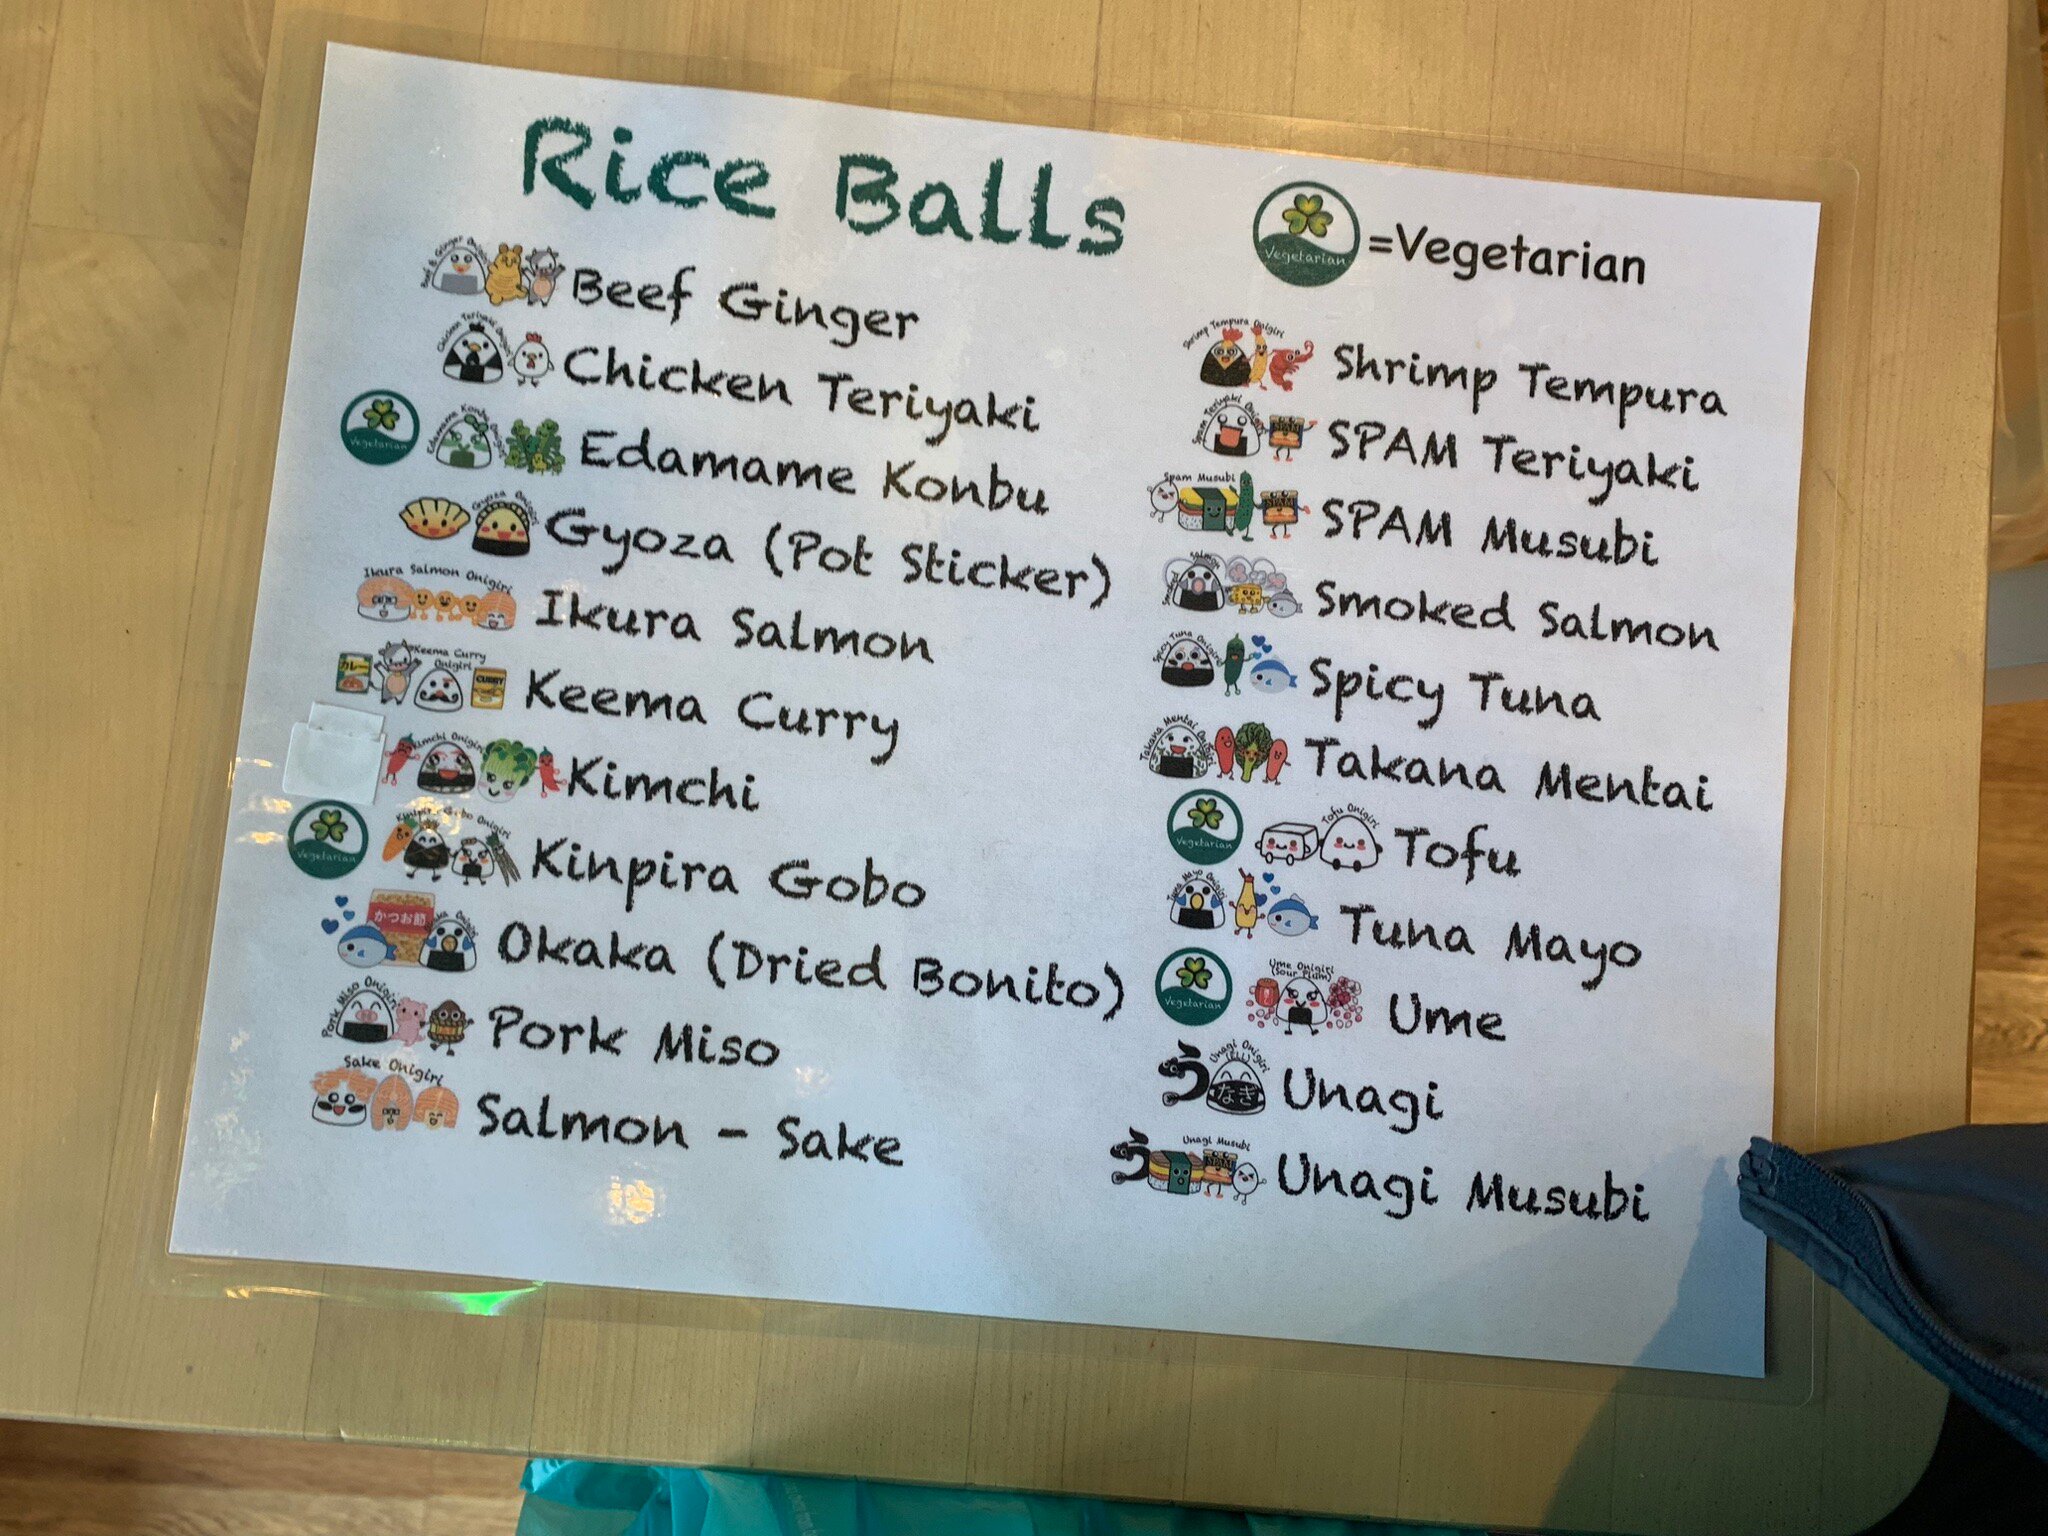 Rice Balls
Vegetarian
=Vegetarian
Beef & Ginger Onigiri
Beef Ginger
Chicken Teriyaki Onigiri
Chicken Teriyaki
Vegetarian
Edamame Konbu Onigiri
Edamame Konbu
Gyoza Onigiri
Gyoza (Pot Sticker)
Ikura Salmon Onigiri
Ikura Salmon
カレー
Keema Curry Onigiri
CURRY
Keema Curry
Kimchi Onigiri
Kimchi
Vegetarian
Kinpira Gobo Onigiri
Kinpira Gobo
かつお節
Onigiri
Okaka (Dried Bonito)
Pork Miso Onigiri
Pork Miso
Sake Onigiri
Salmon - Sake
Shrimp Tempura Onigiri
Shrimp Tempura
Spam Teriyaki Onigiri
SPAM
SPAM Teriyaki
Spam Musubi
SPAM
SPAM Musubi
Smoked Salmon
Smoked Salmon
Spicy Tuna Onigiri
Spicy Tuna
Takana Mentai Onigiri
Takana Mentai
Vegetarian
Tofu Onigiri
Tofu
Tuna Mayo Onigiri
Tuna Mayo
Vegetarian
Ume Onigiri
(Sour Plum)
Ume
Unagi Onigiri
(EEL)
う
なぎ
Unagi
Unagi Musubi
う
SPAM
Unagi Musubi